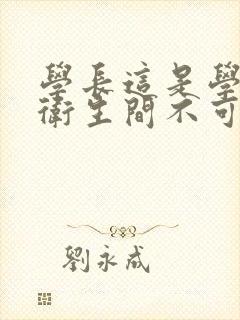 學長這是學
衛生間不可
劉永成